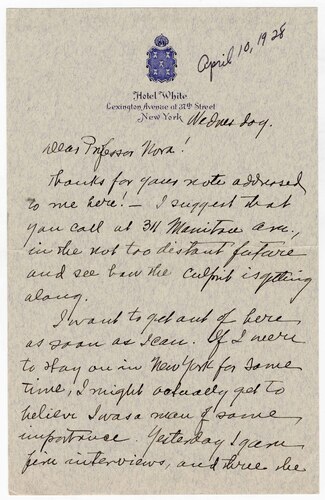 April 10, 1928
Hotel White
Lexington Avenue at 37th Street
New York
Wednesday.
Dear Professor Nova!
Thanks for your note addressed
to me here! - I suggest that
you call at 311 Manitou Ave.,
in the not too distant future
and see how the culprit is getting
along.
I want to get out of here
as soon as I can. If I were
to stay on in New York for some
time, I might actually get to
believe I was a man of some
importance. Yesterday I gave
five interviews, and three